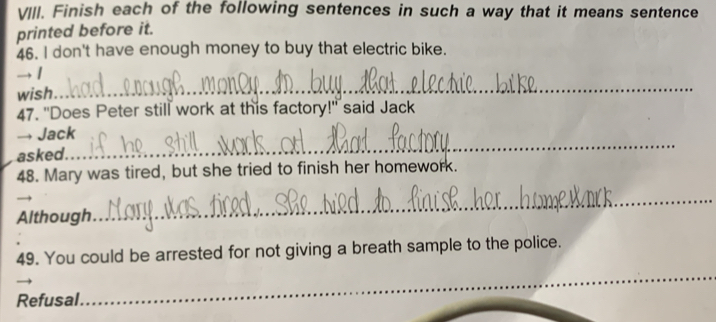 VIII. Finish each of the following sentences in such a way that it means sentence
printed before it.
46. I don't have enough money to buy that electric bike.
→ I
wish...had enough money to buy that electric bike...
47. "Does Peter still work at this factory!" said Jack
→ Jack
asked...if he still work at that factory...
48. Mary was tired, but she tried to finish her homework.
→
Although...Mary was tired, she tried to finish her homework...
.
49. You could be arrested for not giving a breath sample to the police.
→
Refusal...